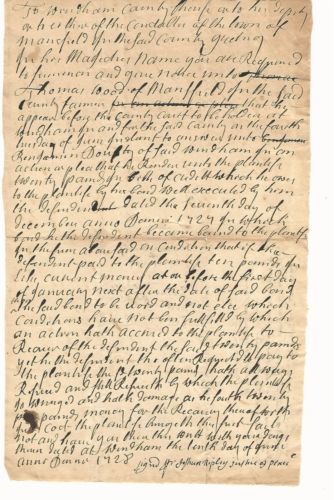 To Windham County Sheriff or to his deputy
or to either of the Constables of the town of
Mansfield In the said County greeting
In his Majesties Name you are Required
to Summon and give notice unto
Thomas Wood of Mansfield In the said
County farmer that he
appear before the County Court to be holden at
Windham In and for the said County on the fourth
tusday of June to answer unto
Benjamin of said Windham In an
action or plea that he Render unto the plentife
twenty pounds In bills of Credit which he owes
to the plentife by his bond well executed by him
the defendent dated the seventh day of
december anno Domini In which
bond he the defendent became bound to the plentife
In the sum aforesaid on Condition that if the
defendent paid to the plentife ten pounds In
like current money at or before the first day
of January next after the date of said bond
the said bond to be void and not else which
Conditions hath not ben fullfilld by which
an action hath accrued to the plentife to
Recover of the defendent the said twenty pounds
yet he the defendent tho often Requested to pay to
the plentife the twenty pounds hath allways
Refused and still Refuseth by which the plentife
is wronged and hath damage as he saith twenty
pounds money for the Recovery thereof with
Just Cost the plentife bringeth this suit fail
not and have you then this Writ with your doings
theron dated at Windham the tenth day of June
anno Domini 1728
signd Joshua Ripley Justice of peace